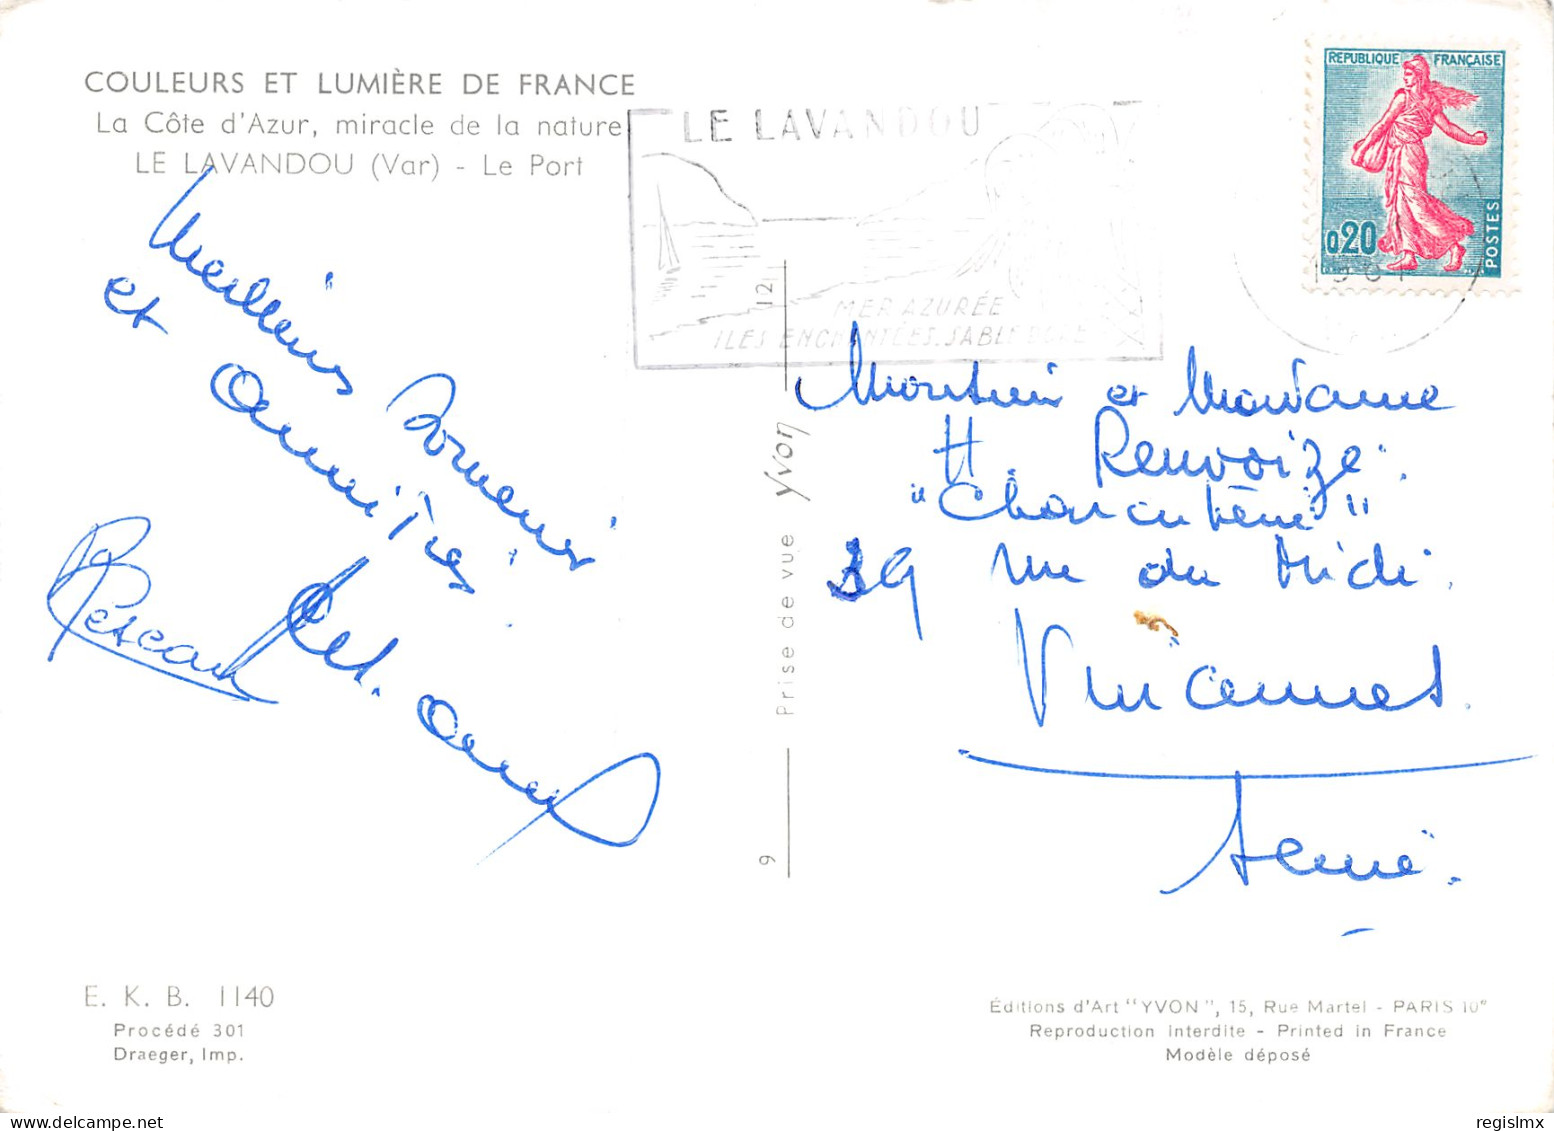 COULEURS ET LUMIÈRE DE FRANCE
La Côte d'Azur, miracle de la nature
LE LAVANDOU (Var) - Le Port
LE LAVANDOU
MER AZURÉE
ILES ENCHANTÉES. SABLE DORÉ
REPUBLIQUE FRANÇAISE
0,20
POSTES
Meilleurs Souvenirs
et amitiés
Monsieur et Madame
H. Renvoizé.
"Charcuterie"
39 rue du Midi.
Vincennes.
Seine.
12
Prise de vue Yvon
9
E. K. B. 1140
Procédé 301
Draeger, Imp.
Éditions d'Art "YVON", 15, Rue Martel - PARIS 10e
Reproduction interdite - Printed in France
Modèle déposé
regislmx